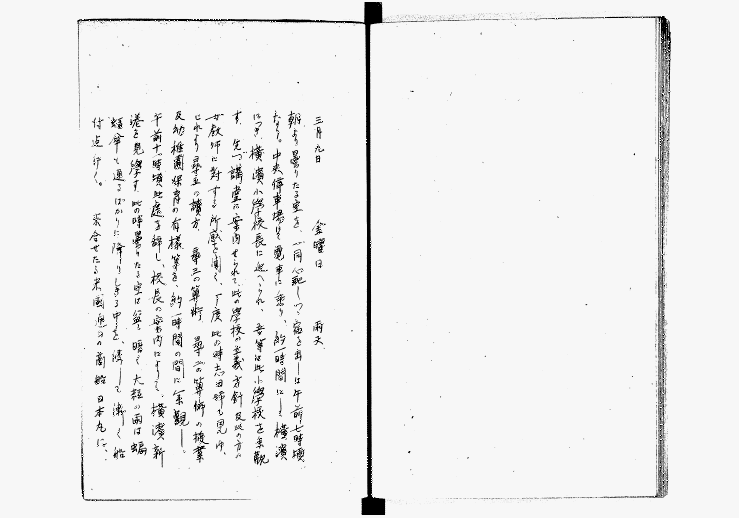 三月九日 金曜日 雨天
朝より曇りたる空を、一同心配しつゝ宿を出しは午前七時頃
なり。中央停車場にて電車に乗り、約一時間にして横濱
につき、横濱小學校長に迎へられ、吾等は此小學校を参観
す。先づ講堂に案内せられて此の學校の主義方針及此の方の
女教師に対する所感を聞く、丁度此の時志田師も見ゆ、
それより尋五の讀方、尋三の算術、尋二の算術の授業
及幼稚園保育の有様等を、約一時間の間に参観し、
午前十一時頃此處を辞し、校長の案内によりて、横濱新
港を見學す、此の時曇りたる空は益々暗く大粒の雨は蝙
蝠傘も通るばかりに降りしきる中を、濡して漸く船
付点に行く。 来合せたる米國通ひの商船日本丸に、